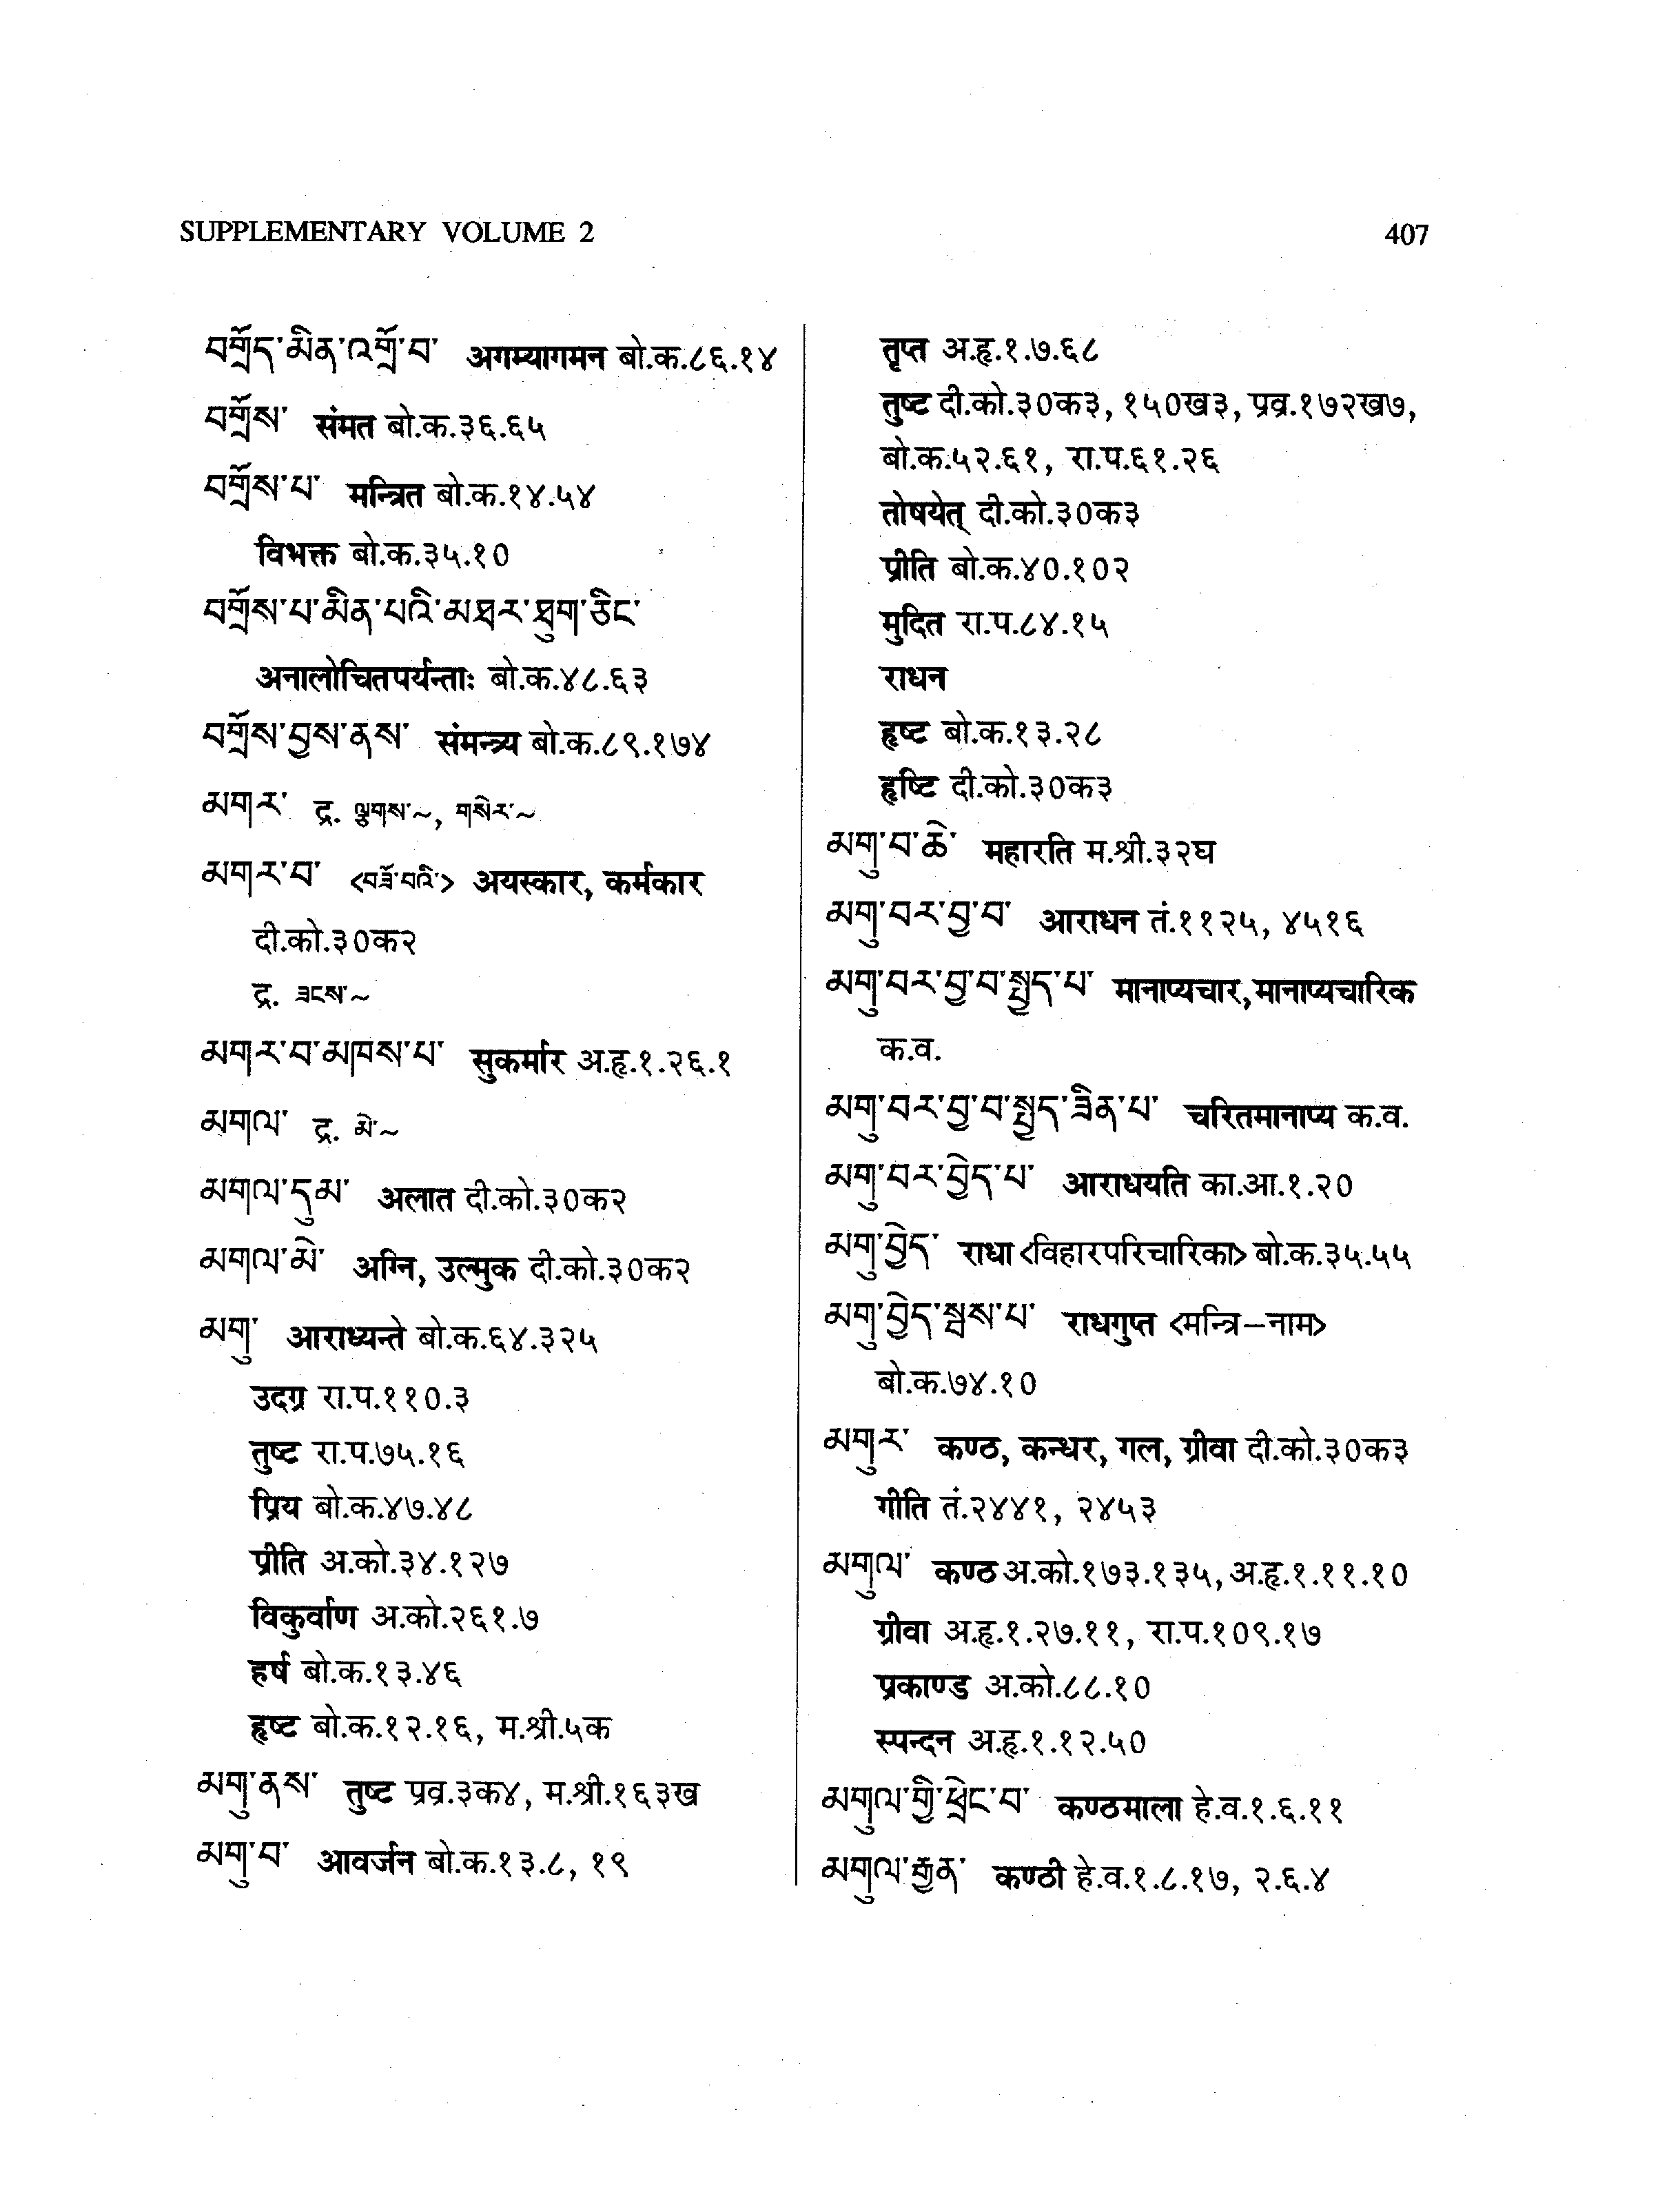 SUPPLEMENTARY VOLUME 2
407
བགྲོད་མིན་འགྲོ་བ་ अगम्यागमन बो.क.८६.१४
བགྲོས་ संमत बो.क.३६.६५
བགྲོས་པ་ मन्त्रित बो.क.१४.५४
विभक्त बो.क.३५.१०
བགྲོས་པ་མིན་པའི་མཐར་ཐུག་ཅིང་
अनालोचितपर्यन्ताः बो.क.४८.६३
བགྲོས་བྱས་ནས་ संमन्त्र्य बो.क.८९.१७४
མགར་ द्र. ལྕགས་~, གསེར་~
མགར་བ་ <བཟོ་བའི་> अयस्कार, कर्मकार
दी.को.३०क२
द्र. ཟངས་~
མགར་བ་མཁས་པ་ सुकर्मार अ.हृ.१.२६.१
མགལ་ द्र. མེ་~
མགལ་དུམ་ अलात दी.को.३०क२
མགལ་མེ་ अग्नि, उल्मुक दी.को.३०क२
མགུ་ आराध्यन्ते बो.क.६४.३२५
उदग्र रा.प.११०.३
तुष्ट रा.प.७५.१६
प्रिय बो.क.४७.४८
प्रीति अ.को.३४.१२७
विकुर्वाण अ.को.२६१.७
हर्ष बो.क.१३.४६
हृष्ट बो.क.१२.१६, म.श्री.५क
མགུ་ནས་ तुष्ट प्रव्र.३क४, म.श्री.१६३ख
མགུ་བ་ आवर्जन बो.क.१३.८, १९
तृप्त अ.हृ.१.७.६८
तुष्ट दी.को.३०क३, १५०ख३, प्रव्र.१७२ख७,
बो.क.५२.६१, रा.प.६१.२६
तोषयेत् दी.को.३०क३
प्रीति बो.क.४०.१०२
मुदित रा.प.८४.१५
राधन
हृष्ट बो.क.१३.२८
हृष्टि दी.को.३०क३
མགུ་བ་ཆེ་ महारति म.श्री.३२घ
མགུ་བར་བྱ་བ་ आराधन तं.११२५, ४५१६
མགུ་བར་བྱ་བ་སྤྱད་པ་ मानाप्यचार, मानाप्यचारिक
क.व.
མགུ་བར་བྱ་བ་སྤྱད་ཟིན་པ་ चरितमानाप्य क.व.
མགུ་བར་བྱེད་པ་ आराधयति का.आ.१.२०
མགུ་བྱེད་ राधा <विहारपरिचारिका> बो.क.३५.५५
མགུ་བྱེད་སྦས་པ་ राधगुप्त <मन्त्रि–नाम>
बो.क.७४.१०
མགུར་ कण्ठ, कन्धर, गल, ग्रीवा दी.को.३०क३
गीति तं.२४४१, २४५३
མགུལ་ कण्ठ अ.को.१७३.१३५, अ.हृ.१.११.१०
ग्रीवा अ.हृ.१.२७.११, रा.प.१०९.१७
प्रकाण्ड अ.को.८८.१०
स्पन्दन अ.हृ.१.१२.५०
མགུལ་གྱི་ཕྲེང་བ་ कण्ठमाला हे.व.१.६.११
མགུལ་རྒྱན་ कण्ठी हे.व.१.८.१७, २.६.४